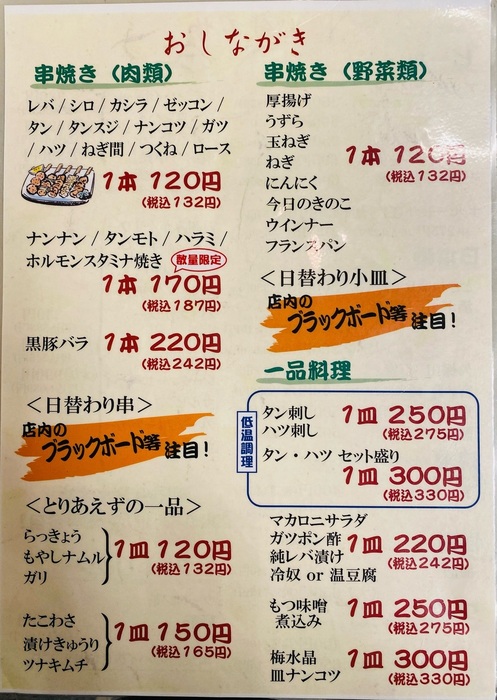 おしながき
串焼き（肉類）
レバ / シロ / カシラ / ゼッコン /
タン / タンスジ / ナンコツ / ガツ
/ ハツ / ねぎ間 / つくね / ロース
1本 120円
（税込132円）
ナンナン / タンモト / ハラミ /
ホルモンスタミナ焼き 数量限定
1本 170円
（税込187円）
黒豚バラ 1本 220円
（税込242円）
＜日替わり串＞
店内の
ブラックボード等 注目！
＜とりあえずの一品＞
らっきょう
もやしナムル
ガリ
1皿 120円
（税込132円）
たこわさ
漬けきゅうり
ツナキムチ
1皿 150円
（税込165円）
串焼き（野菜類）
厚揚げ
うずら
玉ねぎ
ねぎ
にんにく
今日のきのこ
ウインナー
フランスパン
1本 120円
（税込132円）
＜日替わり小皿＞
店内の
ブラックボード等 注目！
一品料理
低温調理
タン刺し
ハツ刺し
1皿 250円
（税込275円）
タン・ハツ セット盛り
1皿 300円
（税込330円）
マカロニサラダ
ガツポン酢
純レバ漬け
冷奴 or 温豆腐
1皿 220円
（税込242円）
もつ味噌
煮込み
1皿 250円
（税込275円）
梅水晶
皿ナンコツ
1皿 300円
（税込330円）